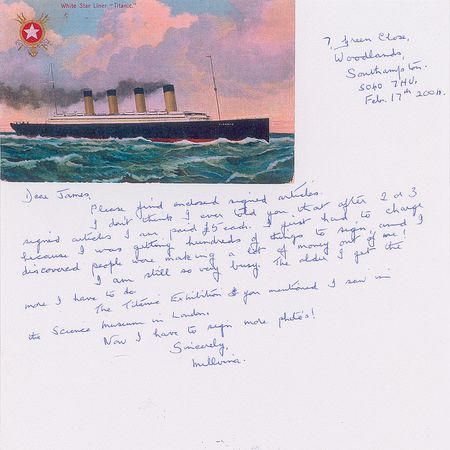 White Star Liner "Titanic."
7, Green Close,
Woodlands,
Southampton.
SO40 7HU,
Feb. 17th
Dear James,
Please find enclosed signed articles.
I don't think I ever told you, that after 2 or 3
signed articles I am paid £5 each. I just had to charge
because I was getting hundreds of things to sign, and I
discovered people were making a lot of money out of me!
I am still so very busy. The older I get the
more I have to do
The Titanic Exhibition you mentioned I saw in
the Science Museum in London.
Now I have to sign more photo's!
Sincerely,
Millvina.